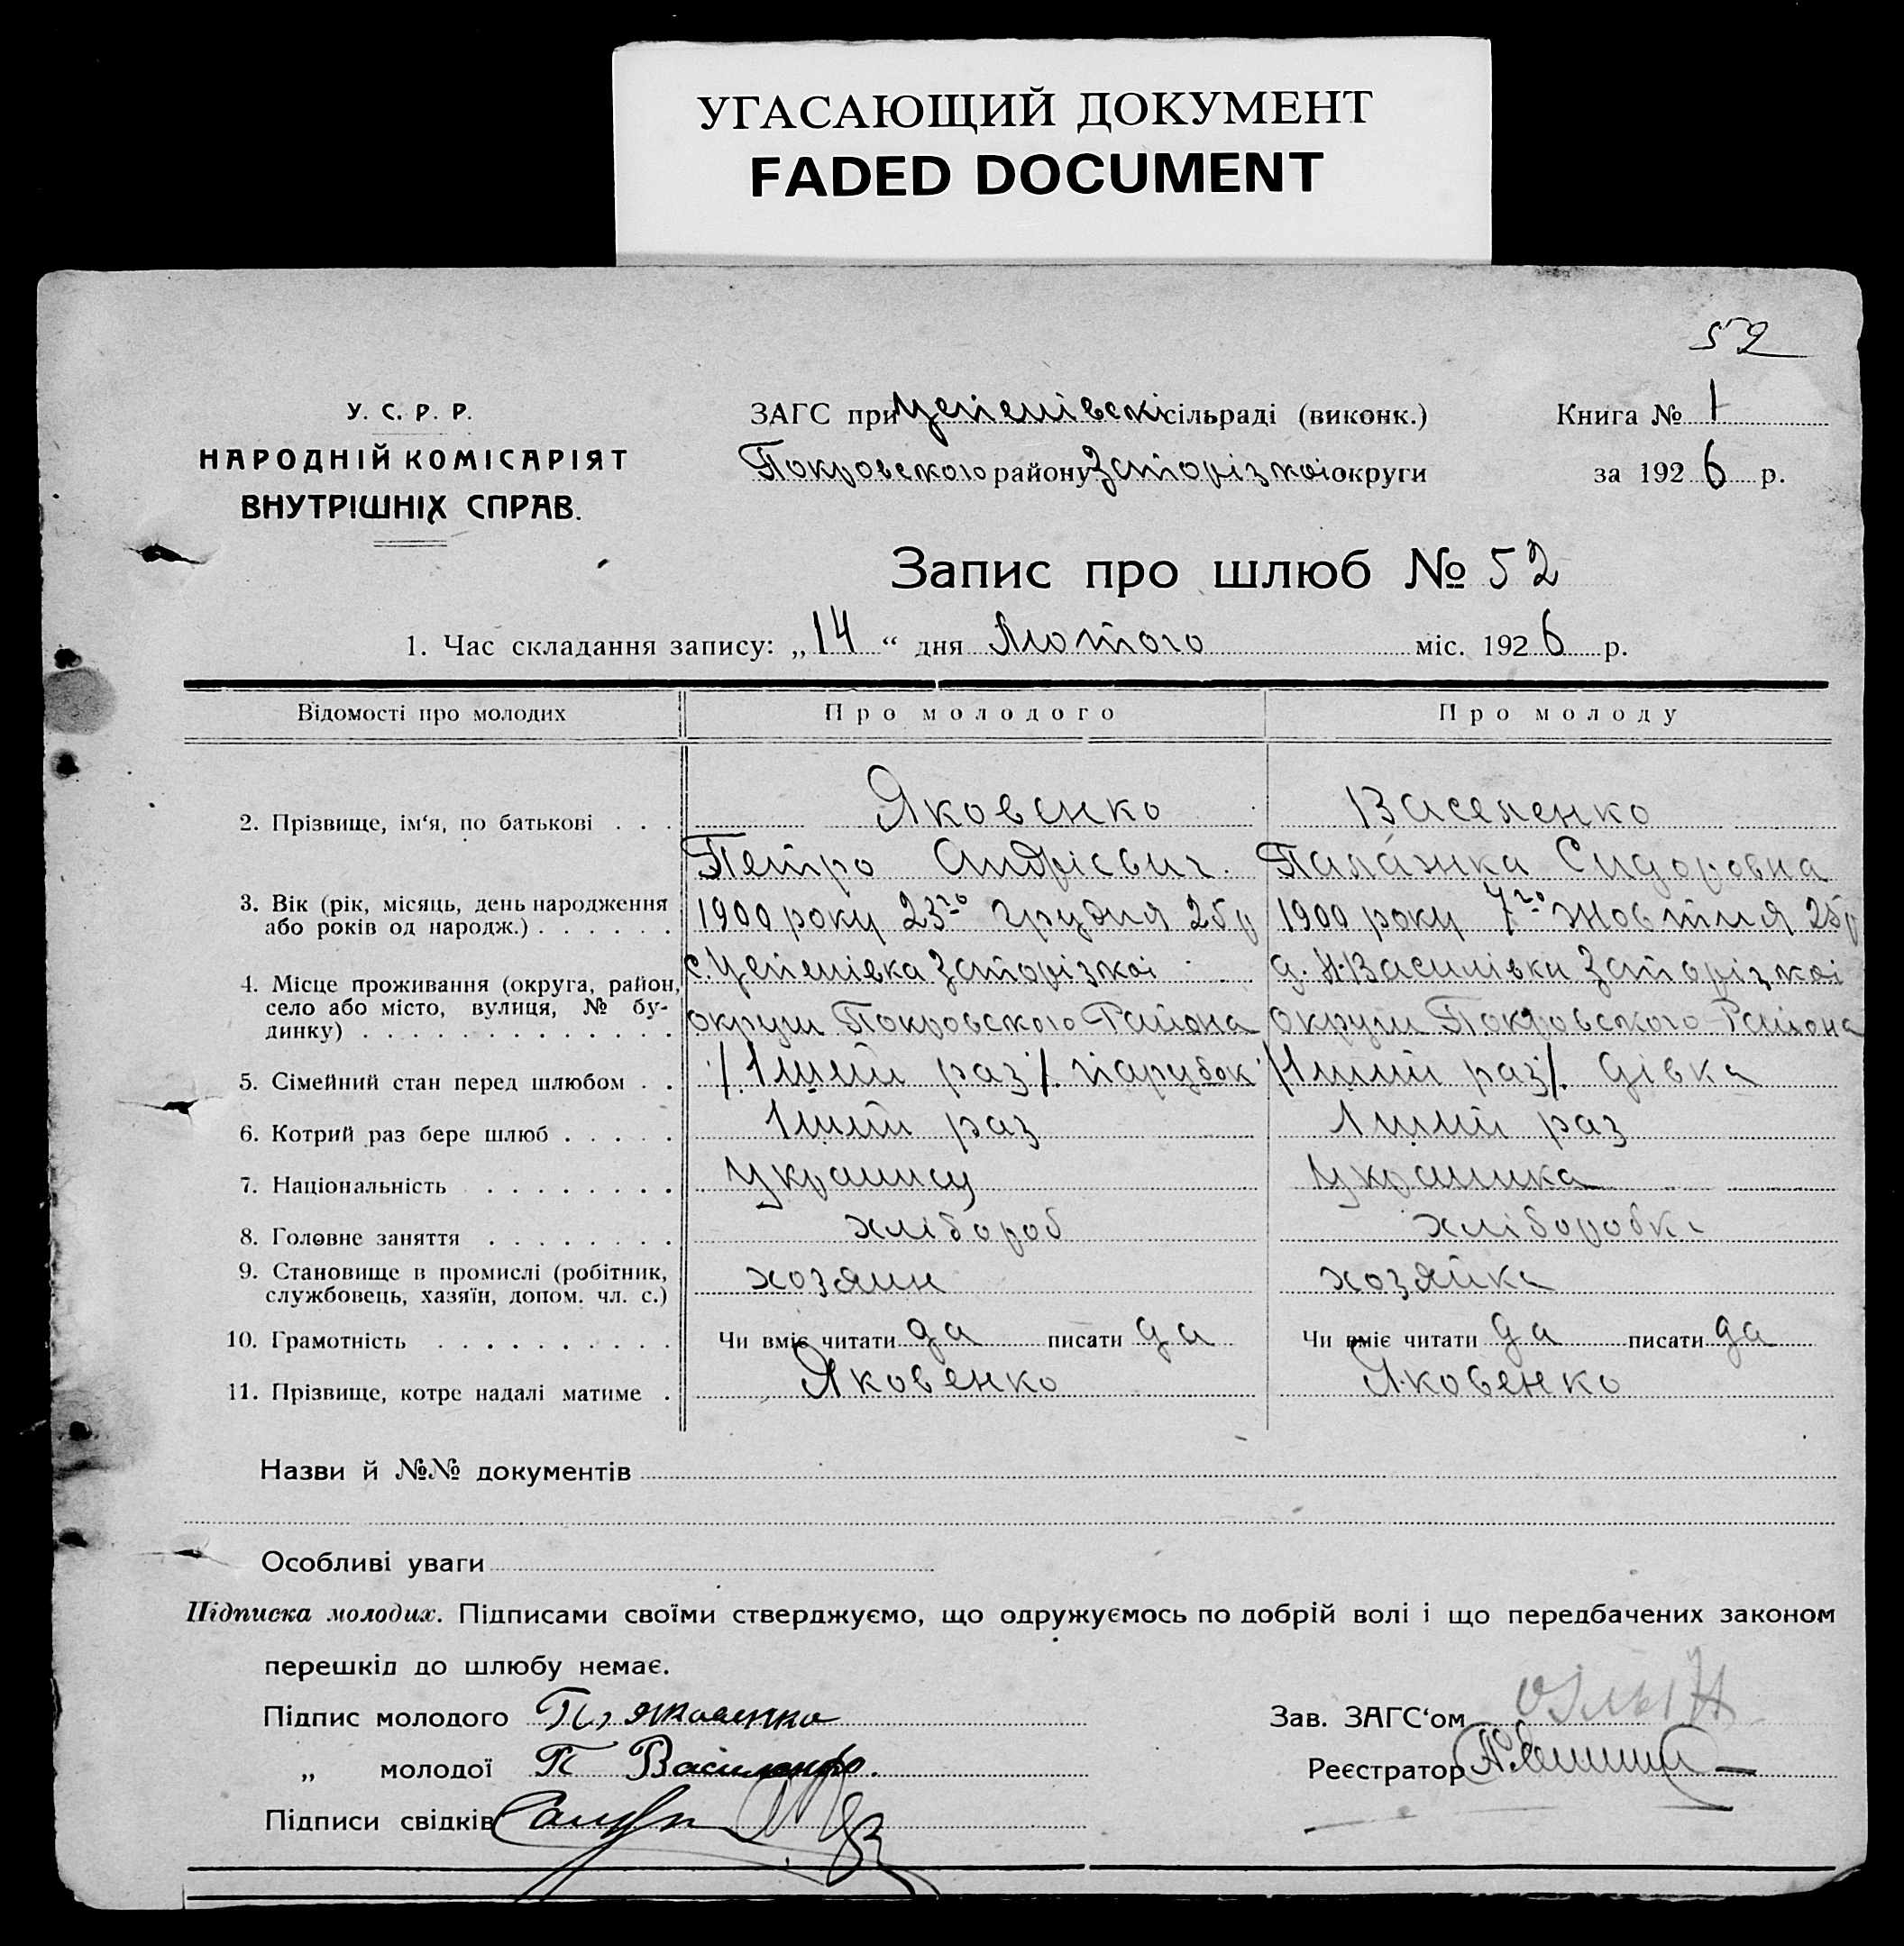 УГАСАЮЩИЙ ДОКУМЕНТ
FADED DOCUMENT
52
У. С. Р. Р.
НАРОДНІЙ КОМІСАРІЯТ
ВНУТРІШНІХ СПРАВ.
ЗАГС при сільраді (виконк.)
Покровського району Запорізкої округи
Книга № 1
за 1926 р.
Запис про шлюб № 52
1. Час складання запису: „14“ дня Лютого міс. 1926 р.
Відомості про молодих Про молодого Про молоду
2. Прізвище, ім‘я, по батькові . . . Яковенко Василенко
Петро Андрієвич. Палажка Сидоровна
3. Вік (рік, місяць, день народження
або років од народж.) . . . . . . 1900 року 23го грудня 25 р 1900 року 7го Жовтня 25 р
4. Місце проживання (округа, район,
село або місто, вулиця, № бу-
динку) . . . . . . . . . . . . .
с. Запорізкої
округи Покровского Района
Н-Василівки Запорізкої
округи Покровского Района
5. Сімейний стан перед шлюбом . . /. 1ший раз /. парубок /1ший раз /. дівка
6. Котрий раз бере шлюб . . . . . 1ший раз 1ший раз
7. Національність . . . . . . . . Украинец Украинка
8. Головне заняття . . . . . . . . хлібороб хлібороб­ка
9. Становище в промислі (робітник,
службовець, хазяїн, допом. чл. с.) хозяин хозяйка
10. Грамотність . . . . . . . . . . Чи вміє читати да писати да Чи вміє читати да писати да
11. Прізвище, котре надалі матиме . Яковенко Яковенко
Назви й №№ документів
Особливі уваги
Підписка молодих. Підписами своїми стверджуємо, що одружуємось по добрій волі і що передбачених законом
перешкід до шлюбу немає.
Підпис молодого П. Яковенко
„ молодої П Василенко.
Підписи свідків
Зав. ЗАГС‘ом
Реєстратор